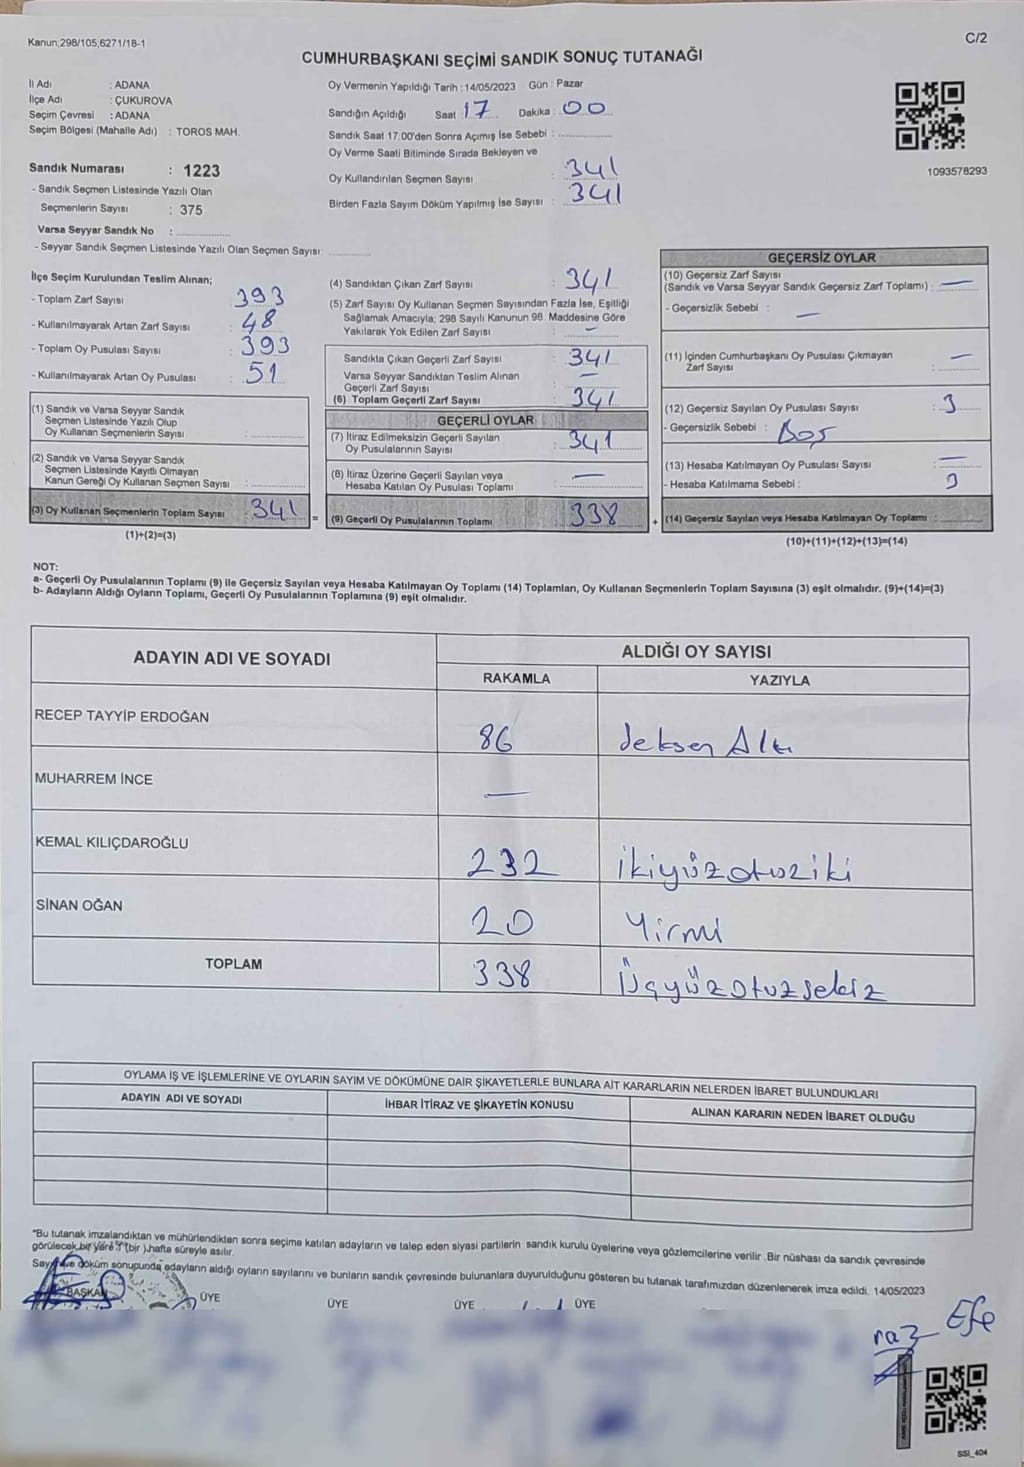 Kanun;298/105;6271/18-1
C/2
CUMHURBAŞKANI SEÇİMİ SANDIK SONUÇ TUTANAĞI
İl Adı : ADANA
İlçe Adı : ÇUKUROVA
Seçim Çevresi : ADANA
Seçim Bölgesi (Mahalle Adı) : TOROS MAH.
Sandık Numarası : 1223
- Sandık Seçmen Listesinde Yazılı Olan
Seçmenlerin Sayısı : 375
Varsa Seyyar Sandık No :
- Seyyar Sandık Seçmen Listesinde Yazılı Olan Seçmen Sayısı:
Oy Vermenin Yapıldığı Tarih :14/05/2023 Gün : Pazar
Sandığın Açıldığı Saat 17 Dakika : 00
Sandık Saat 17.00'den Sonra Açımış İse Sebebi :
Oy Verme Saati Bitiminde Sırada Bekleyen ve
Oy Kullandırılan Seçmen Sayısı : 341
Birden Fazla Sayım Döküm Yapılmış İse Sayısı : 341
1093578293
İlçe Seçim Kurulundan Teslim Alınan;
- Toplam Zarf Sayısı : 393
- Kullanılmayarak Artan Zarf Sayısı : 48
- Toplam Oy Pusulası Sayısı : 393
- Kullanılmayarak Artan Oy Pusulası : 51
(1) Sandık ve Varsa Seyyar Sandık
Seçmen Listesinde Yazılı Olup
Oy Kullanan Seçmenlerin Sayısı :
(2) Sandık ve Varsa Seyyar Sandık
Seçmen Listesinde Kayıtlı Olmayan
Kanun Gereği Oy Kullanan Seçmen Sayısı :
(3) Oy Kullanan Seçmenlerin Toplam Sayısı : 341
(1)+(2)=(3)
=
(4) Sandıktan Çıkan Zarf Sayısı : 341
(5) Zarf Sayısı Oy Kullanan Seçmen Sayısından Fazla İse, Eşitliği
Sağlamak Amacıyla; 298 Sayılı Kanunun 98. Maddesine Göre
Yakılarak Yok Edilen Zarf Sayısı : —
Sandıkta Çıkan Geçerli Zarf Sayısı : 341
Varsa Seyyar Sandıktan Teslim Alınan
Geçerli Zarf Sayısı : —
(6) Toplam Geçerli Zarf Sayısı : 341
GEÇERLİ OYLAR
(7) İtiraz Edilmeksizin Geçerli Sayılan
Oy Pusulalarının Sayısı : 341
(8) İtiraz Üzerine Geçerli Sayılan veya
Hesaba Katılan Oy Pusulası Toplamı : —
(9) Geçerli Oy Pusulalarının Toplamı : 338
+
GEÇERSİZ OYLAR
(10) Geçersiz Zarf Sayısı
(Sandık ve Varsa Seyyar Sandık Geçersiz Zarf Toplamı) : —
- Geçersizlik Sebebi : —
(11) İçinden Cumhurbaşkanı Oy Pusulası Çıkmayan
Zarf Sayısı : —
(12) Geçersiz Sayılan Oy Pusulası Sayısı : 3
- Geçersizlik Sebebi : Boş
(13) Hesaba Katılmayan Oy Pusulası Sayısı : —
- Hesaba Katılmama Sebebi : 3
(14) Geçersiz Sayılan veya Hesaba Katılmayan Oy Toplamı :
(10)+(11)+(12)+(13)=(14)
NOT:
a- Geçerli Oy Pusulalarının Toplamı (9) ile Geçersiz Sayılan veya Hesaba Katılmayan Oy Toplamı (14) Toplamları, Oy Kullanan Seçmenlerin Toplam Sayısına (3) eşit olmalıdır. (9)+(14)=(3)
b- Adayların Aldığı Oyların Toplamı, Geçerli Oy Pusulalarının Toplamına (9) eşit olmalıdır.
ADAYIN ADI VE SOYADI
ALDIĞI OY SAYISI
RAKAMLA YAZIYLA
RECEP TAYYİP ERDOĞAN 86 Seksen Altı
MUHARREM İNCE —
KEMAL KILIÇDAROĞLU 232 ikiyüzotuziki
SİNAN OĞAN 20 Yirmi
TOPLAM 338 Üçyüzotuzsekiz
OYLAMA İŞ VE İŞLEMLERİNE VE OYLARIN SAYIM VE DÖKÜMÜNE DAİR ŞİKAYETLERLE BUNLARA AİT KARARLARIN NELERDEN İBARET BULUNDUKLARI
ADAYIN ADI VE SOYADI İHBAR İTİRAZ VE ŞİKAYETİN KONUSU ALINAN KARARIN NEDEN İBARET OLDUĞU
"Bu tutanak imzalandıktan ve mühürlendikten sonra seçime katılan adayların ve talep eden siyasi partilerin sandık kurulu üyelerine veya gözlemcilerine verilir .Bir nüshası da sandık çevresinde
görülecek bir yere 1 (bir ) hafta süreyle asılır.
Sayım ve döküm sonucunda adayların aldığı oyların sayılarını ve bunların sandık çevresinde bulunanlara duyurulduğunu gösteren bu tutanak tarafımızdan düzenlenerek imza edildi. 14/05/2023
BAŞKAN ÜYE ÜYE ÜYE ÜYE
raz Efe
SSI_404